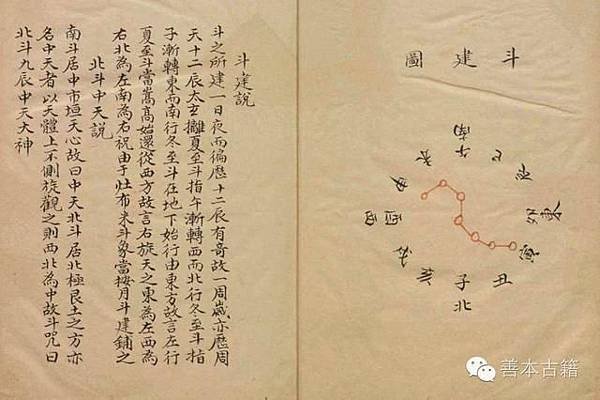 斗建圖
午南
巳
辰
卯東
寅
丑
子北
亥
戌
酉西
申
未
斗建說
斗之所建一日夜而徧歷十二辰有奇故一周歲亦歷周
天十二辰太玄攡夏至斗指午漸轉西而北行冬至斗指
子漸轉東而南行冬至斗在地下始行由東方故言左行
夏至斗當嵩高始還從西方故言右旋天之東為左西為
右北為左南為右祝由于灶布米斗象當按月斗建鋪之
北斗中天說
南斗居中市垣天心故曰中天北斗居北極艮土之方亦
名中天者以天體上不側旋觀之則西北為中故斗咒曰
北斗九辰中天大神
善本古籍